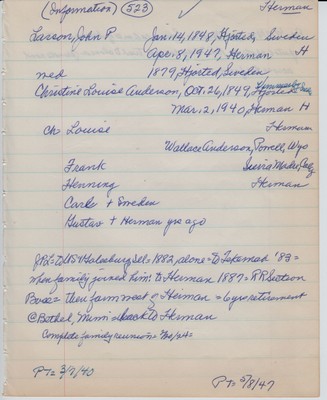 (Information) 523 Herman
Larson, John P. Jan. 14, 1848, Hjorted, Sweden
Apr. 8, 1947, Herman H
med 1879, Hjorted, Sweden
Christine Louise Anderson, Oct. 26, 1849, Hjorted
Mar. 2, 1940, Herman H
Ch Louise Herman
Wallace Anderson, Powell, Wyo
Frank Sierra Madre, Calif
Henning Herman
Carl + Sweden
Gustav + Herman yrs ago
JPL = to US + Galesburg Ill = 1882, alone = to Tekamah '83 =
when family joined him: to Herman 1887 = RR Section
Boss = then farm west of Herman = 6 yrs retirement
@ Bethel, Minn = back to Herman
Complete family reunion =
PT = 3/7/40
PT = 5/8/47